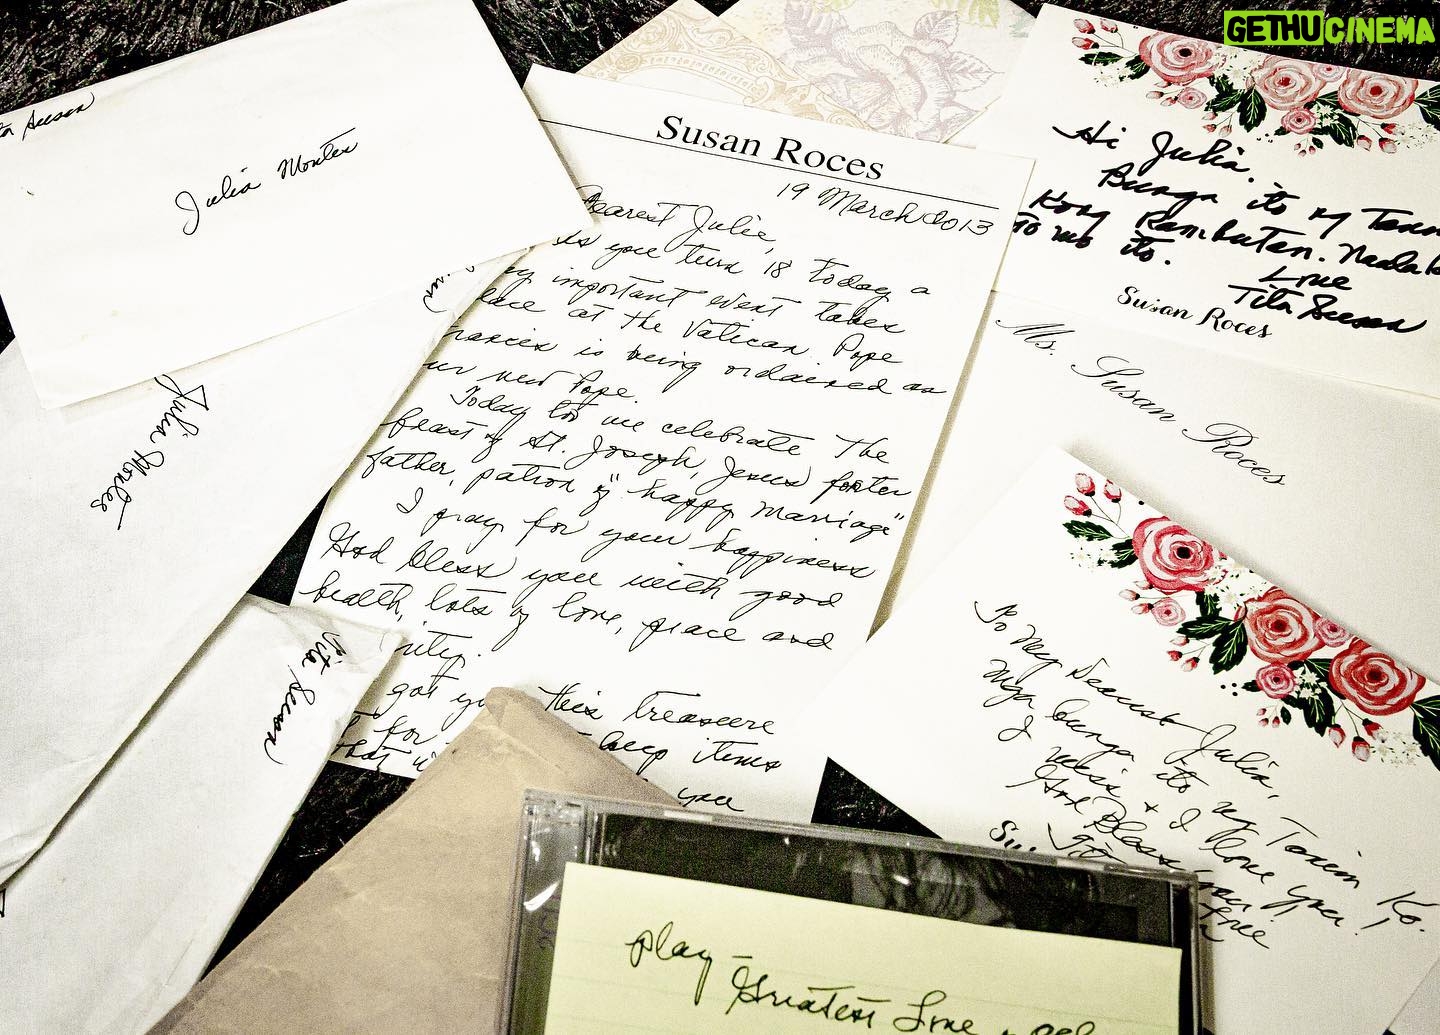 GETHUCINEMA
Susan
Julia Montes
Julia Montes
Tita Susan
Susan Roces
19 March 2013
Dearest Julie,
As you turn 18 today a
important event takes
place at the Vatican. Pope
Francis is being ordained as
our new Pope.
Today too we celebrate the
feast of St. Joseph, Jesus foster
father, patron of "happy marriage"
I pray for your happiness
God bless you with good
health, lots of love, peace and
got you this treasure
for keep items
that you
Hi Julia.
Bunga ito ng Tanim
Kong Rambutan.
mo ito.
Love
Tita Susan
Susan Roces
Ms. Susan Roces
To My Dearest Julia,
Mga bunga ito ng Tanim Ko.
I miss & I love you!
God Bless you
Love
play Greatest Love